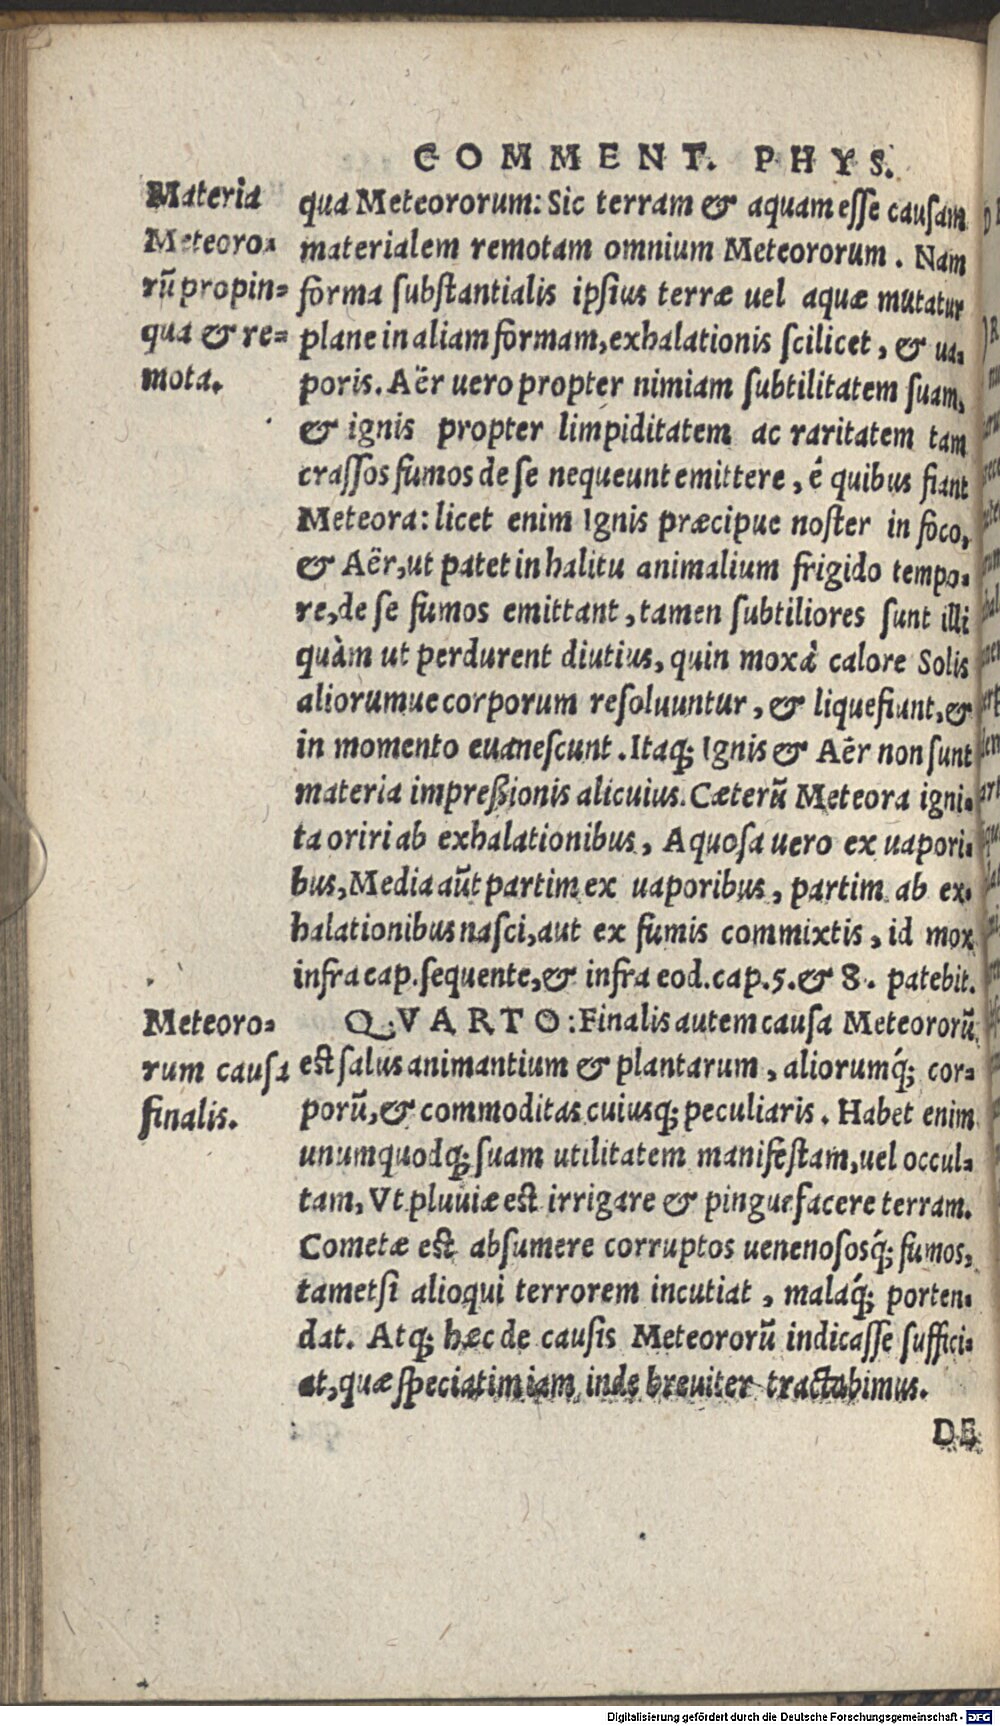 COMMENT. PHYS.
Materia
Meteoro⸗
rũ propin⸗
qua & re⸗
mota.
qua Meteororum: Sic terram & aquam eſſe cauſam
materialem remotam omnium Meteororum. Nam
forma ſubſtantialis ipſius terræ uel aquæ mutatur
plane in aliam formam, exhalationis ſcilicet, & ua⸗
poris. Aër uero propter nimiam ſubtilitatem ſuam,
& ignis propter limpiditatem ac raritatem tam
craſſos fumos de ſe nequeunt emittere, é quibus fiant
Meteora: licet enim Ignis præcipue noſter in foco,
& Aër, ut patet in halitu animalium frigido tempo⸗
re, de ſe fumos emittant, tamen ſubtiliores ſunt illi
quàm ut perdurent diutius, quin mox à calore Solis
aliorumue corporum reſoluuntur, & liquefiunt, &
in momento euaneſcunt. Itaq; Ignis & Aër non ſunt
materia impreßionis alicuius. Cæterũ Meteora igni⸗
ta oriri ab exhalationibus, Aquoſa uero ex uapori⸗
bus, Media aũt partim ex uaporibus, partim ab ex⸗
halationibus naſci, aut ex fumis commixtis, id mox
infra cap. ſequente, & infra eod. cap. 5. & 8. patebit.
Meteoro⸗
rum cauſa
finalis.
QVARTO: Finalis autem cauſa Meteororũ
eſt ſalus animantium & plantarum, aliorumq́; cor⸗
porũ, & commoditas cuiusq; peculiaris. Habet enim
unumquodq; ſuam utilitatem manifeſtam, uel occul⸗
tam, Vt pluuiæ eſt irrigare & pinguefacere terram.
Cometæ eſt abſumere corruptos uenenoſosq́; fumos,
tametſi alioqui terrorem incutiat, malaq́; porten⸗
dat. Atq; hæc de cauſis Meteororũ indicaſſe ſuffici⸗
at, quæ ſpeciatim iam inde breuiter tractabimus.
DE
Digitalisierung gefördert durch die Deutsche Forschungsgemeinschaft - DFG